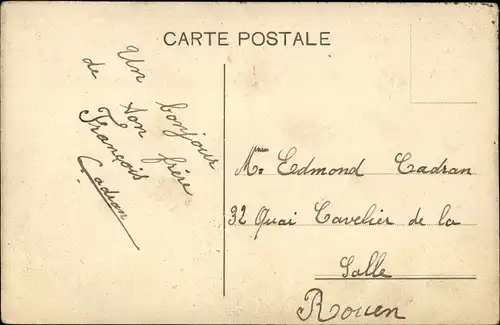 CARTE POSTALE
Un bonjour
de ton frère
François
Cadran
Edmond Cadran
32 Quai Cavelier de la
Salle
Rouen